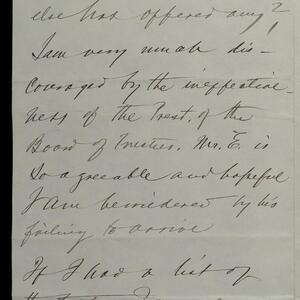 else has offered any?
I am very much dis-
couraged by the ineffective-
ness of the Prest. of the
Board of Trustees. Mr. E. is
so agreeable and hopeful
I am bewildered by his
failing to arrive
If I had a list of